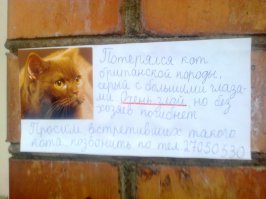 Потерялся кот
британской породы,
серый с большими глаза-
ми Очень злой но без
хозяев погибнет
Просим встретивших такого
кота, позвонить по тел 27050530